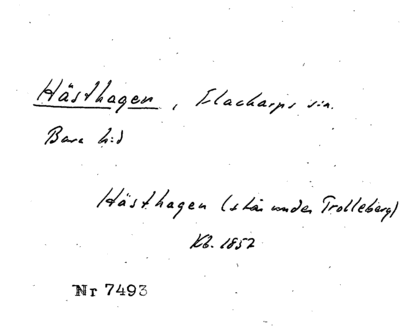 Hästhagen, Flackarps sn.
Bara hd
Hästhagen (står under Trolleberg)
Kb. 1852
Nr 7493